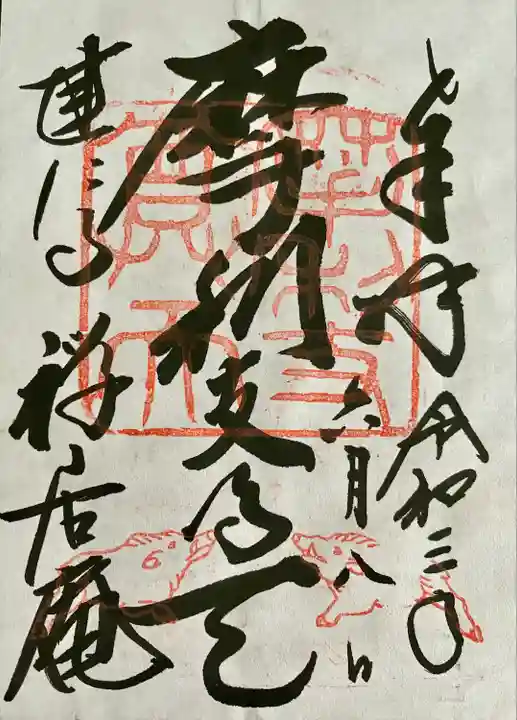 奉拝 令和三年
六月八日
摩利支尊天
建仁寺 禅居庵